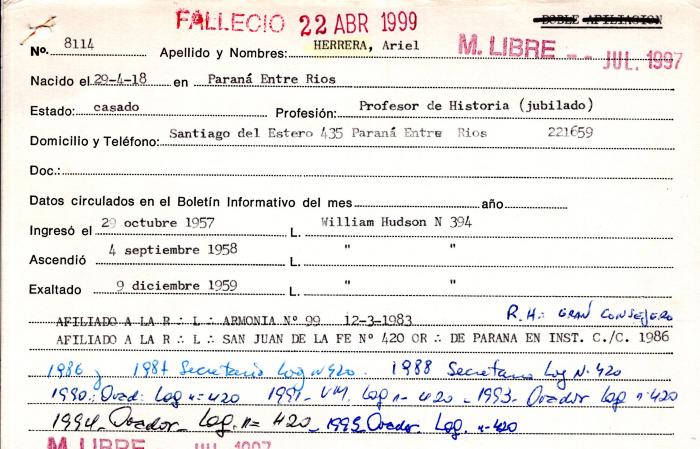 FALLECIO 22 ABR 1999
DOBLE AFILIACION
No. 8114 Apellido y Nombres: HERRERA, Ariel
M. LIBRE -- JUL. 1997
Nacido el 29-4-18 en Paraná Entre Rios
Estado: casado Profesión: Profesor de Historia (jubilado)
Domicilio y Teléfono: Santiago del Estero 435 Paraná Entre Rios 221659
Doc.:
Datos circulados en el Boletín Informativo del mes año
Ingresó el 29 octubre 1957 L. William Hudson N 394
Ascendió 4 septiembre 1958 L. " "
Exaltado 9 diciembre 1959 L. " "
R.H.: GRAN CONSEJERO
AFILIADO A LA R ∴ L ∴ ARMONIA Nº 99 12-3-1983
AFILIADO A LA R ∴ L ∴ SAN JUAN DE LA FE Nº 420 OR ∴ DE PARANA EN INST. C./C. 1986
1986 y 1987 Secretario Log nº 420. 1988 Secretario Log Nº 420
1990: Orad: Log nº 420 1991- V.M. Log nº 420 - 1993- Orador Log nº 420
1994- Orador- Log. nº 420 - 1995 Orador. Log. nº 420
M. LIBRE JUL. 1997